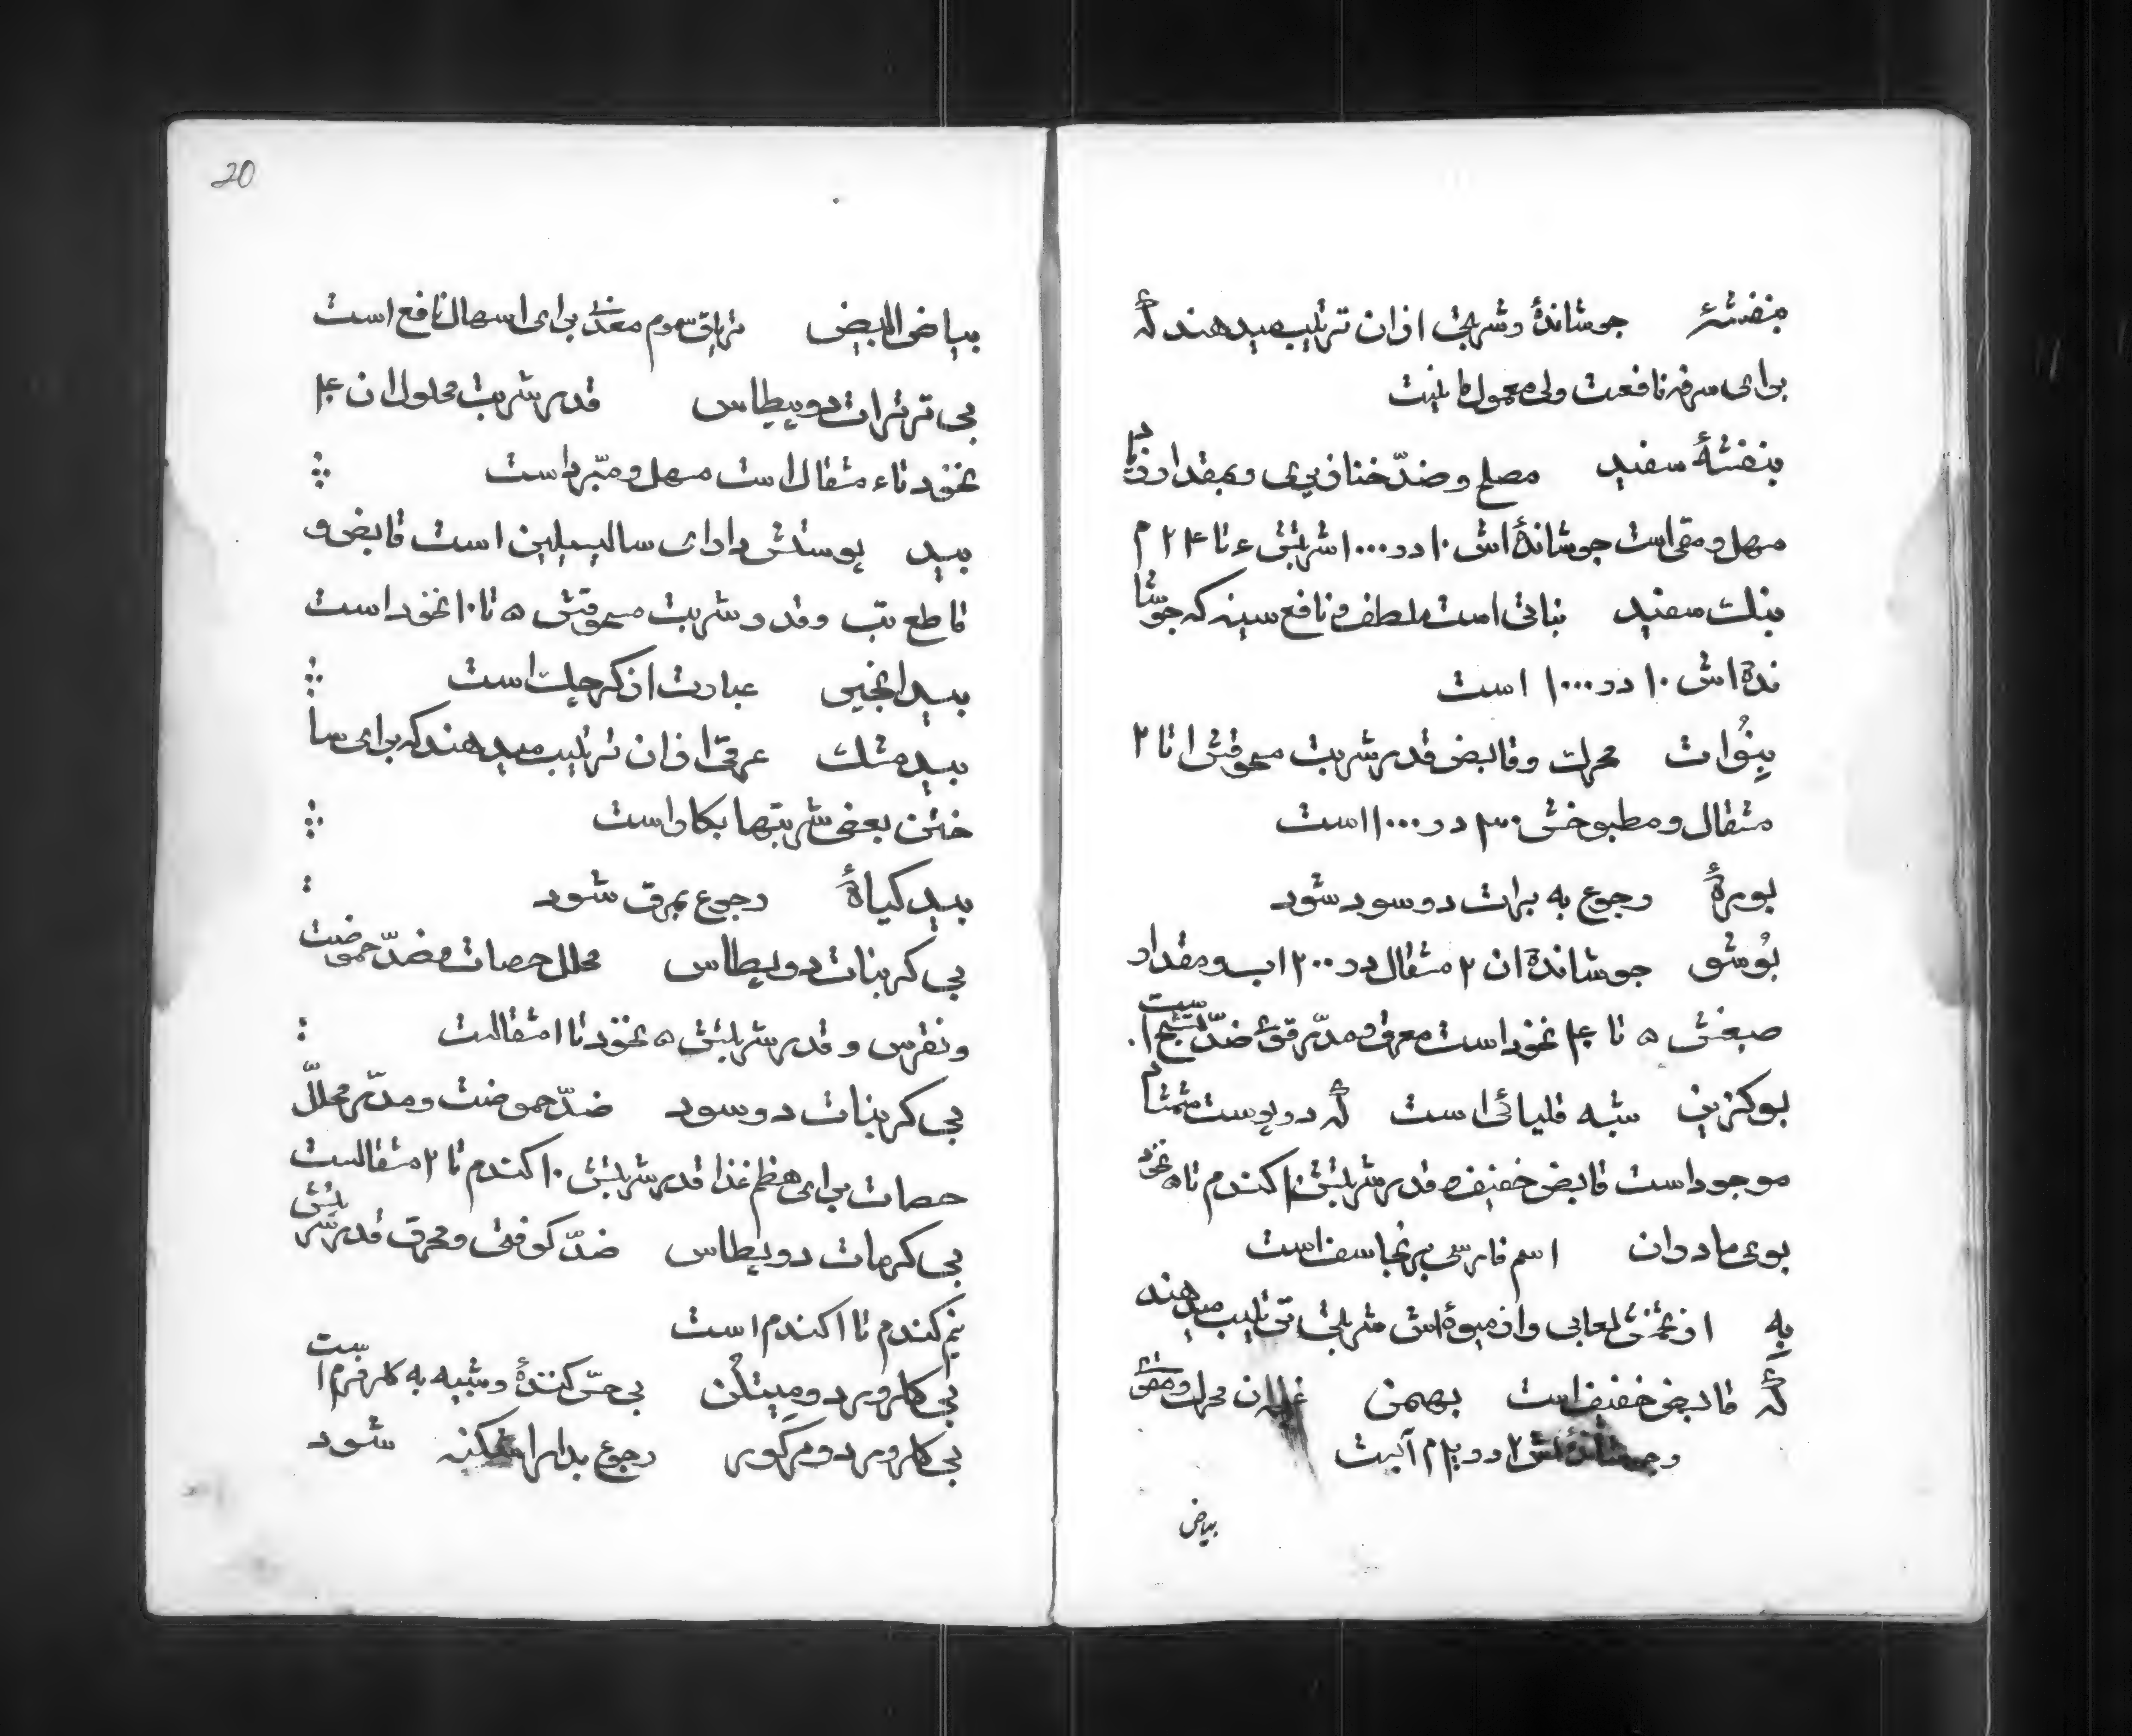 بنفشهٔ جوشاندهٔ و شربتی ازان ترتیب میدهند کهٔ
برای سرفه نافعست ولی معمول ما نیست
بنفشهٔ سفید مصلح و ضدّ خنازیری و بمقدار زیاد
مسهل و مقی است جوشاندهٔ اش ۱۰ در ۱۰۰۰ شربتش ۶ تا ۲۴ م
بنک سفید نباتی است ملطف و نافع سینه که جوشا
نده اش ۱۰ در ۱۰۰۰ است
بِنُوات محرک و قابض قدر شربت مسحوقش ۱ تا ۲
مثقال و مطبوخش ۳۰ در ۱۰۰۰ است
بورهٔ رجوع به برات دو سود شود
بُوشو جوشاندهٔ ان ۲ مثقال در ۲۰۰ اب و مقدار
صبغش ۵ تا ۴۰ نخود است معرق و مدّر قوی ضدّ تشنج است
بوکزین شبه قلیائی است کهٔ در پوست شمشاد
موجود است قابض خفیف و قدر شربتش ۱۰ کندم تا ۵ نخود
بوی مادران اسم فارسی برنجاسف است
بِه از تخمش لعابی و از میوهٔ اش شربتی ترتیب میدهند
کهٔ قابض خفیف است بهمن محرک و مقوی
و جوشاندهٔ اش در م آبست
بیاض
20
بیاض البیض تریاق سموم معدنی برای اسهال نافع است
بی ترترات دو پطاس قدر شربت محلول ان ۴
نخود تا ۶ مثقال است مسهل و مبّرد است
بید پوستش دارای سالیسیلین است قابض و
قاطع تب و قدر شربت مسحوقش ۵ تا ۱۰ نخود است
بید انجیر عبارت از کرچک است
بید مشک عرقی ازان ترتیب میدهند که برای سا
ختن بعضی شربتها بکار است
بید کیاهٔ رجوع بمرق شود
بی کربنات دو پطاس محلل حصات و ضدّ حموضت
و نقرس و قدر شربتش ۵ نخود تا ۱ مثقالست
بی کربنات دو سود ضدّ حموضت و مدّر محللّ
حصات برای هظم غذا قدر شربتش ۱۰ کندم تا ۲ مثقالست
بی کرمات دو پطاس ضدّ کوفتی و محرق قدر شربتش
نیم کندم تا ۱ کندم است
بی کلرور دو مِیتلُن بی حسّ کنندهٔ و شبیه به کلرفرم است
بی کلرور دو مرکور رجوع بدارا شکنه شود